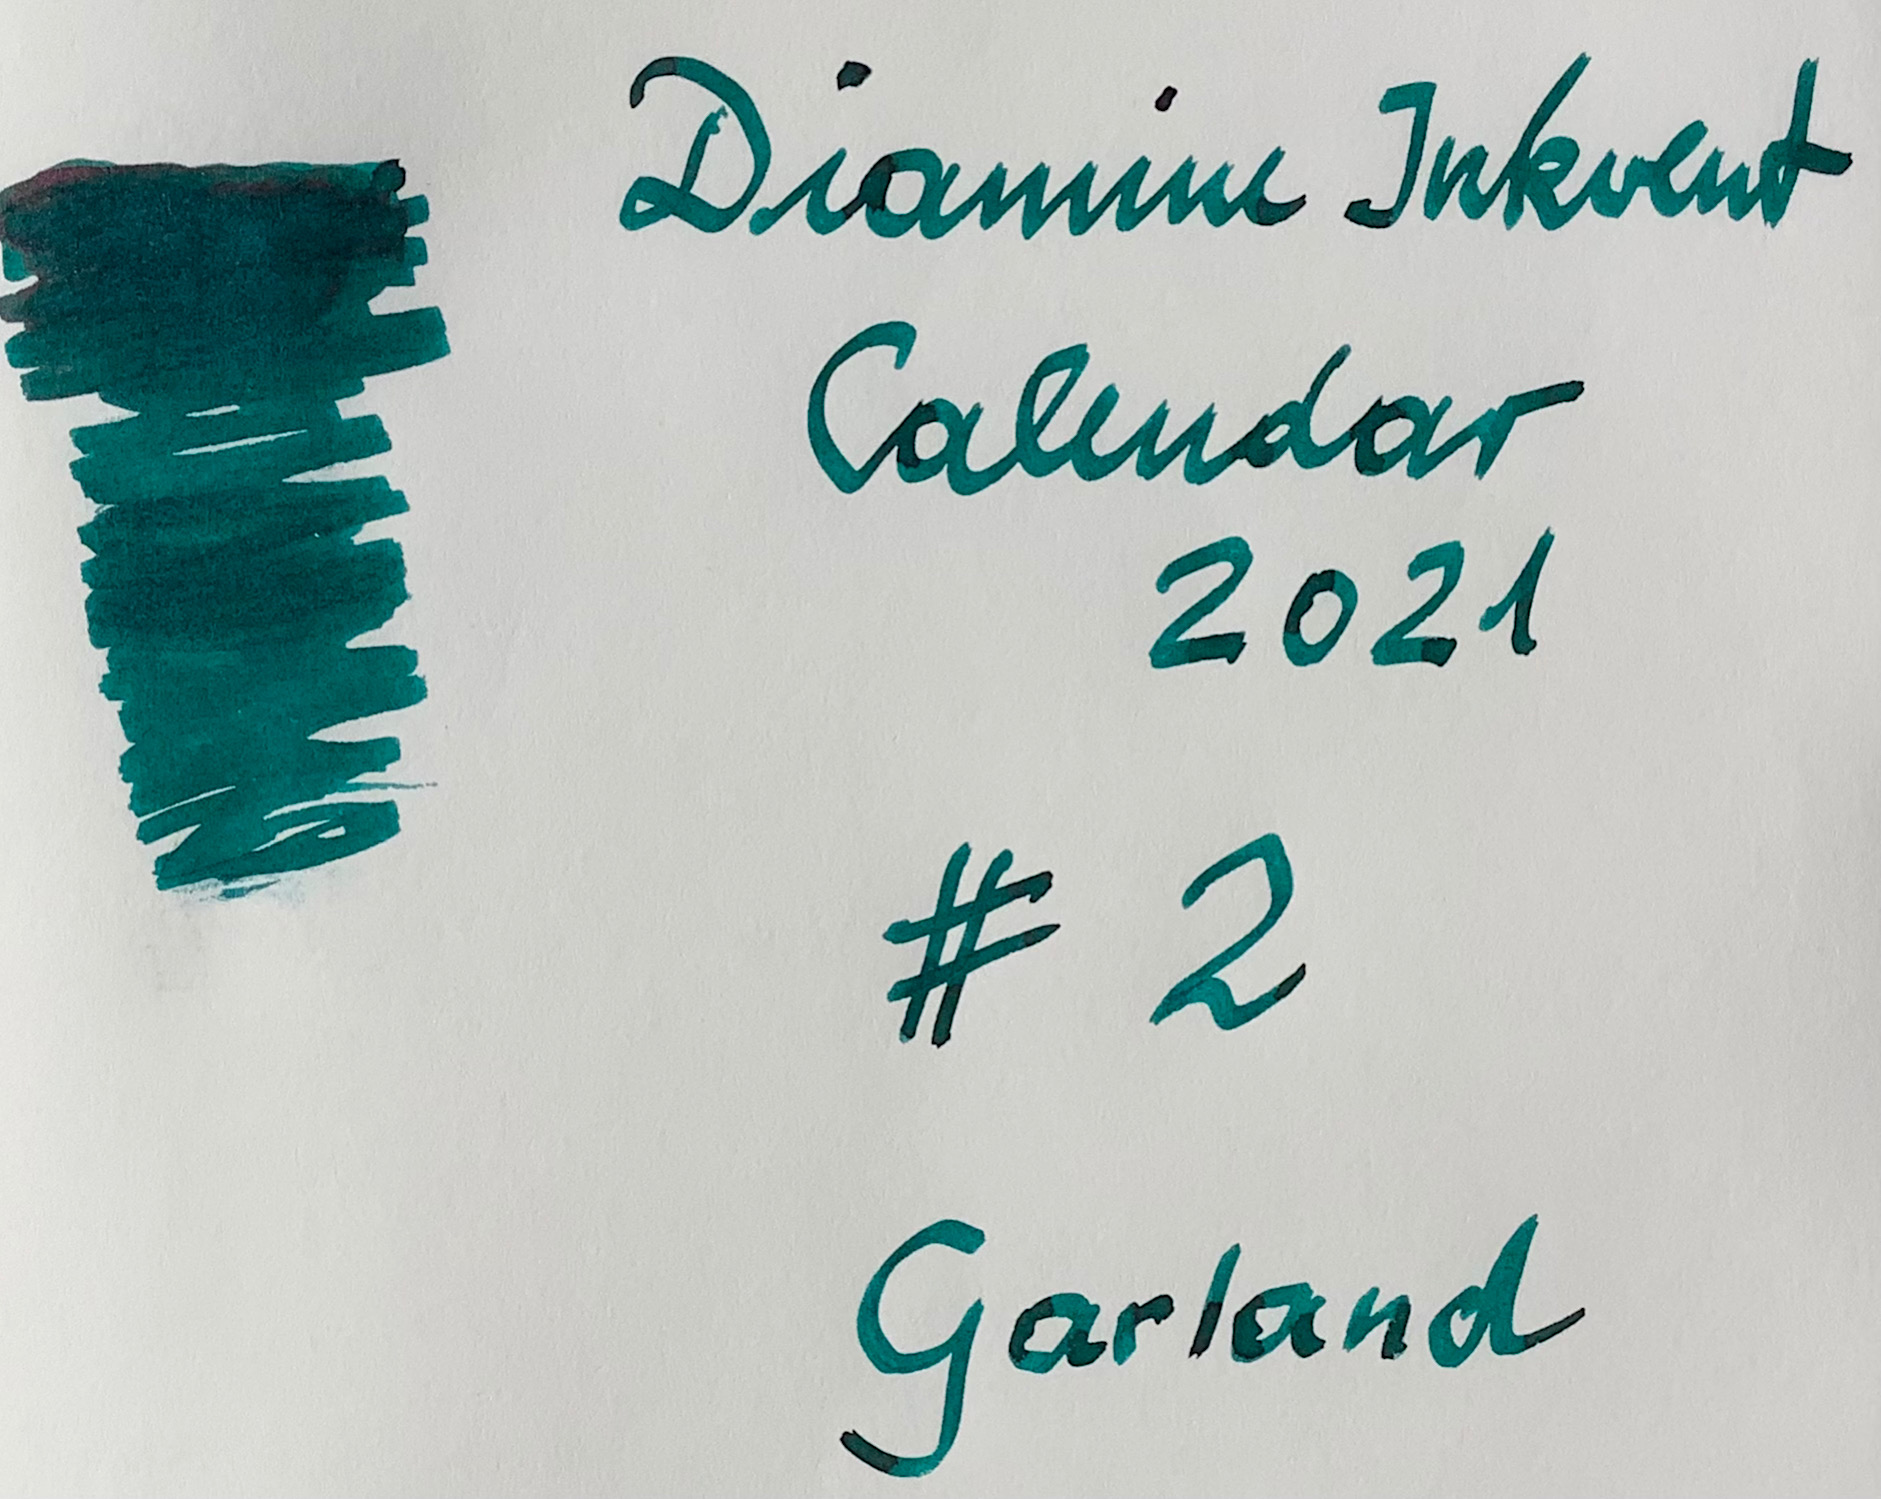 Diamine Inkvent
Calendar
2021
# 2
Garland